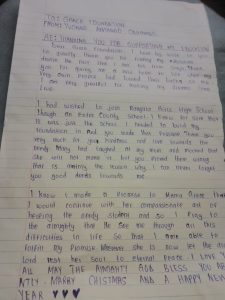 TO: GRACE FOUNDATION
FROM: YVONNE AMBANGO
RE: THANKING YOU FOR SUPPORTING MY EDUCATION
Dear Grace Foundation, I had to write to you
to greatly thank you for making my
dream
you for giving me a new hope in life when my
very own people had turned their backs on me.
I am very grateful for making my dreams come
true.
I had wished to join Bungoma Girls High School
though an Extra County School. I knew for sure that
it was just the School I needed to build my
foundation in and you made that possible. Thank you
very much your kindness and love towards the
needy. Many had laughed at my mom and mocked that
she will not make it but you proved them wrong
that is among the reason why I can never forget
you good deeds towards me.
I know I made a Promise to Mama Grace that
I would continue with her compassionate act of
helping the needy student and so I pray to
the almighty that He see me through all this
difficulties in life so that I more able to
fulfil my Promise wherever she is now let the dear
Lord rest her Soul to Eternal Peace. I LOVE YOU
ALL MAY THE ALMIGHTY GOD BLESS YOU
NTLY. MARRY CHRISTMAS AND A HAPPY NEW
YEAR ♥♥♥